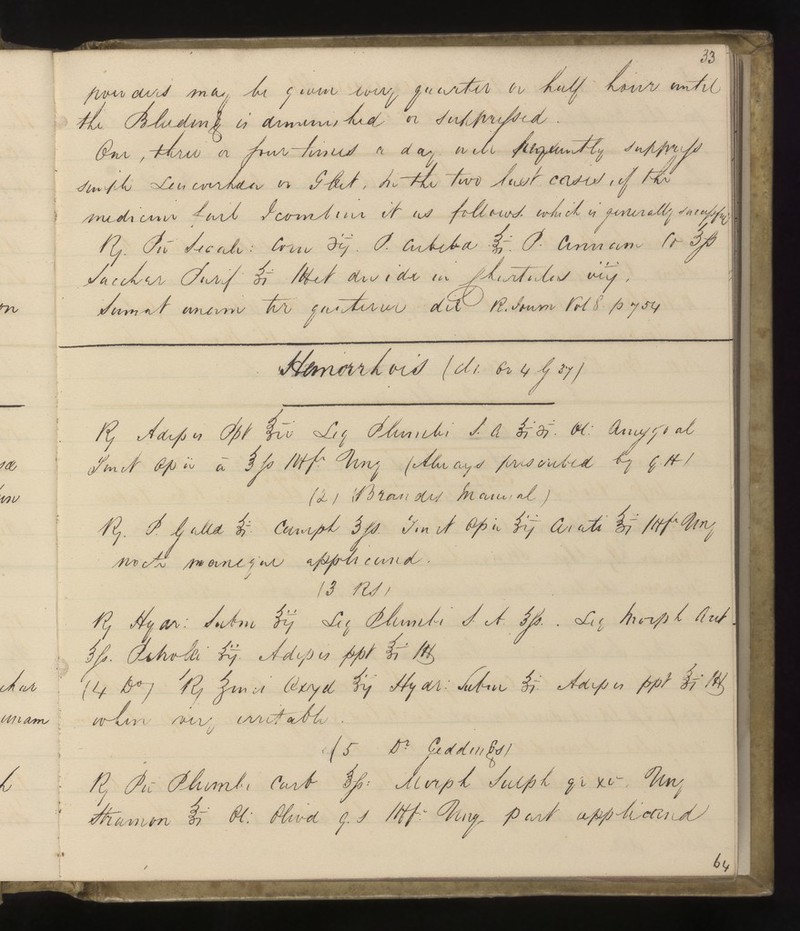 33
powders may be given every quarter or half hour until
the Bleeding is diminished or suppressed.
One, three or four times a day will frequently suppress
simple Leucorrhœa or Gleet, in the two last cases if the
medicine fail I combine it as follows which is generally successful
R. Pu Secale: Corn ʒij. P. Cubeba ℥i. P. Cinnam Co ʒß
Sacchar Purif ℥i Met divide in Chartulas viij.
Sumat unam ter quaterve die R. Journ Vol 8 p 754
Hemorrhois (
R Adipis Ppt Liq Plumbi S. A Ol: Amygdal
Tinct Opii ā ʒß Mft Ung (Always prescribed by G H)
(2) Brandes Manual)
R. P. Galla ʒi Camph ʒß. Tinct Opii ʒij Cerati ℥i Mft Ung
nocte maneque applicand.
(3 RS)
R Hydr: Subm ʒij Liq Plumbi S. A. ʒß. Liq Morph Acet
ʒß. ʒij. Adipis ppt ℥i M
(4 Do) R Zinci Oxyd ʒij Hydr: Subm ʒi Adipis ppt ℥i M
when very irritable.
(5 Dr Geddings)
R Pu Plumbi Carb ʒß: Morph Sulph gr xv. Ung
Stramon ℥i Ol: Oliva q.s Mft Ung part applicand
64
sæ